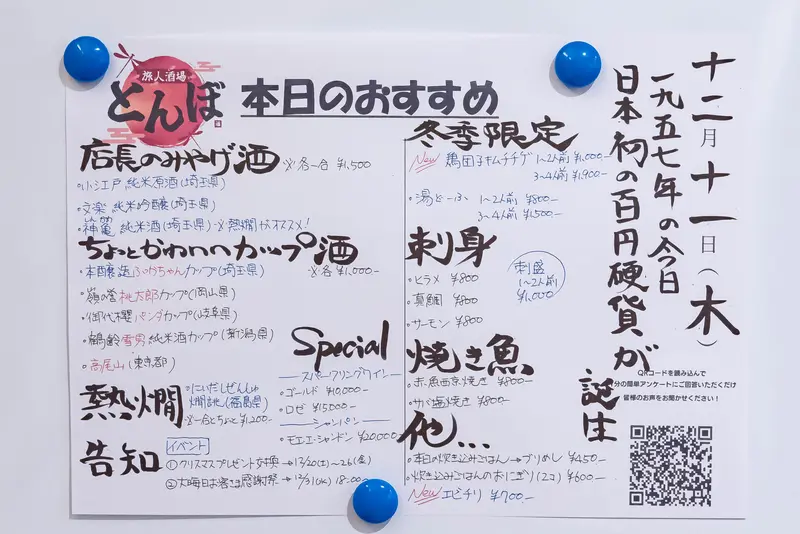 旅人酒場
とんぼ
本日のおすすめ
店長のみやげ酒 ※各一合 ¥1,500
・小江戸 純米原酒(埼玉県)
・文楽 純米吟醸(埼玉県)
・神亀 純米酒(埼玉県)※熱燗がオススメ!
ちょっとかわいいカップ酒
・本醸造ふっかちゃんカップ(埼玉県) ※各¥1,000-
・嶺の誉桃太郎カップ(岡山県)
・御代櫻パンダカップ(岐阜県)
・鶴齢雪男純米酒カップ(新潟県)
・高尾山(東京都)
熱燗
・にいだしぜんしゅ
燗誂(福島県)
※一合とちょっと¥1,200-
Special
スパークリングワイン
・ゴールド ¥10,000-
・ロゼ ¥15,000-
シャンパン
・モエエシャンドン ¥20,000-
告知
イベント
①クリスマスプレゼント交換→12/20(土)~26(金)
②大晦日お客さま感謝祭→12/31(水)18:00~
冬季限定
New 鶏団子キムチチゲ 1~2人前 ¥1,000-
3~4人前 ¥1,900-
・湯どーふ 1~2人前 ¥800-
3~4人前 ¥1,500-
刺身
・ヒラメ ¥800
・真鯛 ¥800
・サーモン ¥800
刺盛
1~2人前
¥1,000
焼き魚
・赤魚西京焼き ¥800-
・サバ塩焼き ¥800-
他...
・本日の炊き込みごはん→ブリめし ¥450-
・炊き込みごはんのおにぎり(2コ) ¥600-
New エビチリ ¥700-
十二月十一日(木)
一九五七年の今日
日本初の百円硬貨が
誕生
QRコードを読み込んで
分の簡単アンケートにご回答いただくだけ
皆様のお声をお聞かせください!